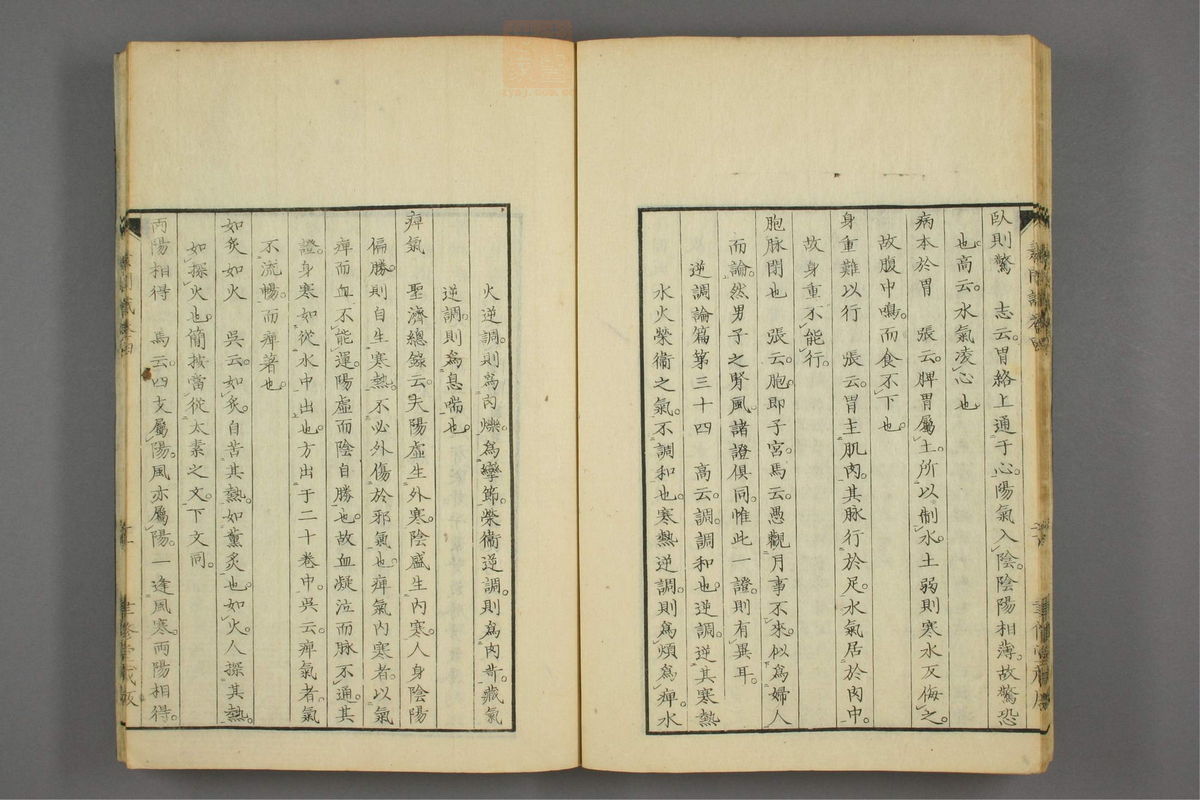 臥則驚　志云。胃絡上通于心。陽氣入陰。陰陽相薄。故驚恐
也。高云。水氣凌心也
病本於胃　張云。脾胃屬土。所以制水。土弱則寒水反侮之。
故腹中鳴。而食不下也。
身重難以行　張云。胃主肌肉。其脉行於足。水氣居於肉中。
故身重不能行。
胞脉閉也　張云。胞即子宮。馬云。愚觀月事不來。似為婦人
而論。然男子之腎風。諸證俱同。惟此一證。則有異耳。
逆調論篇第三十四　高云。調。調和也。逆調。逆其寒熱
水火榮衞之氣。不調和也。寒熱逆調。則為煩為痹。水
火逆調。則為肉爍。為攣節。榮衞逆調。則為肉苛。藏氣
逆調。則為息喘也。
痹氣　聖濟總錄云。夫陽虛生外寒。陰盛生內寒。人身陰陽
偏勝。則自生寒熱。不必外傷於邪氣也。痹氣內寒者。以氣
痹而血不能運。陽虛而陰自勝也。故血凝泣而脉不通。其
證。身寒如從水中出也。方出于二十卷中。吳云。痹氣者。氣
不流暢。而痹著也。
如炙如火　吳云。如炙。自苦其熱。如薰炙也。如火。人探其熱。
如探火也。簡按當從太素之文。下文同。
兩陽相得　馬云。四支屬陽。風亦屬陽。一逢風寒。兩陽相得。